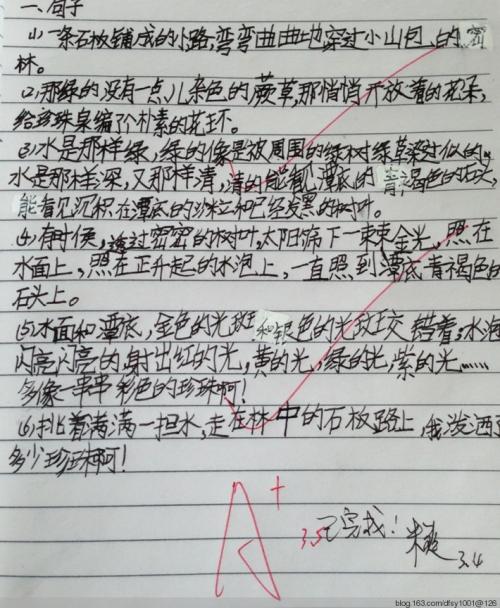 一、句子
(1)一条石板铺成的小路,弯弯曲曲地穿过小山包的密
林。
(2)那绿的没有一点儿杂色的蕨草,那悄悄开放着的花朵,
给珍珠泉编了个朴素的花环。
(3)水是那样绿,绿的像是被周围的绿树绿草染过似的。
水是那样深,又那样清,清的能看见潭底的青褐色的石头,
能看见沉积在潭底的沙粒和已经发黑的树叶。
(4)有时候,透过密密的树叶,太阳筛下一束束金光,照在
水面上,照在正升起的水泡上,一直照到潭底青褐色的
石头上。
(5)水面和潭底,金色的光斑和银色的光斑交错着;水泡
闪亮闪亮的,射出红的光,黄的光,绿的光,紫的光……
多像一串串彩色的珍珠啊!
(6)挑着满满一担水,走在林中的石板路上,我泼洒了
多少珍珠啊!
A+
3.5 已完成!
3.4
blog.163.com/dfsy1001@126